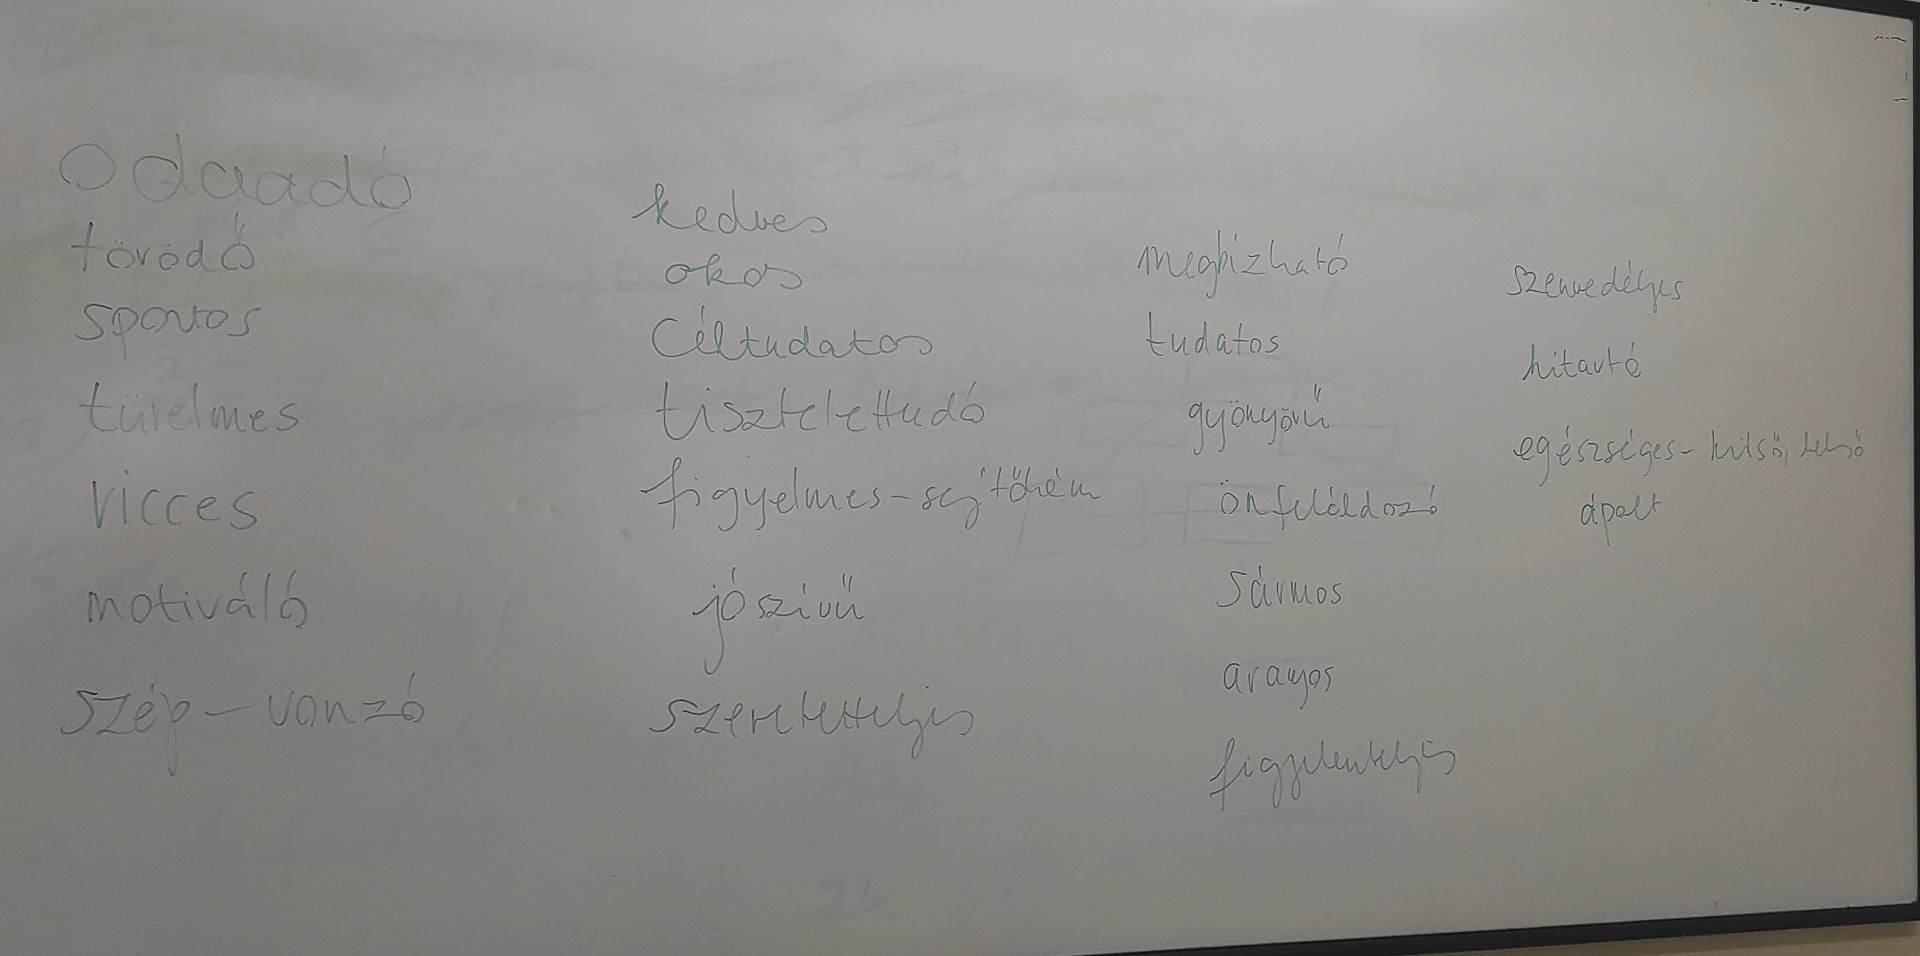 Odaadó
törődő
sportos
türelmes
vicces
motiváló
szép - vonzó
kedves
okos
Céltudatos
tisztelettudó
figyelmes - sejtőkém
jószívű
szeretetteljes
megbízható
tudatos
gyönyörű
önfeláldozó
Sármos
aranyos
figyelemteljes
szenvedélyes
kitartó
egészséges - külső, belső
ápolt